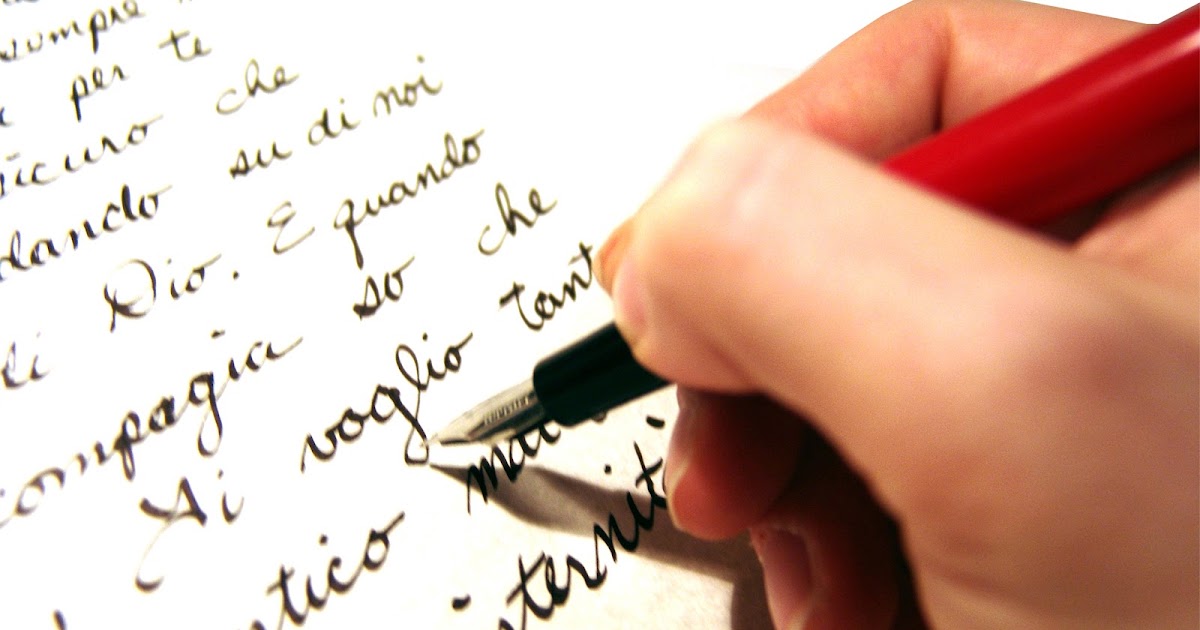 sempre
per te
sicuro che
dando su di noi
di Dio. E quando
compagia so che
Ti voglio tant
ntico
ternit